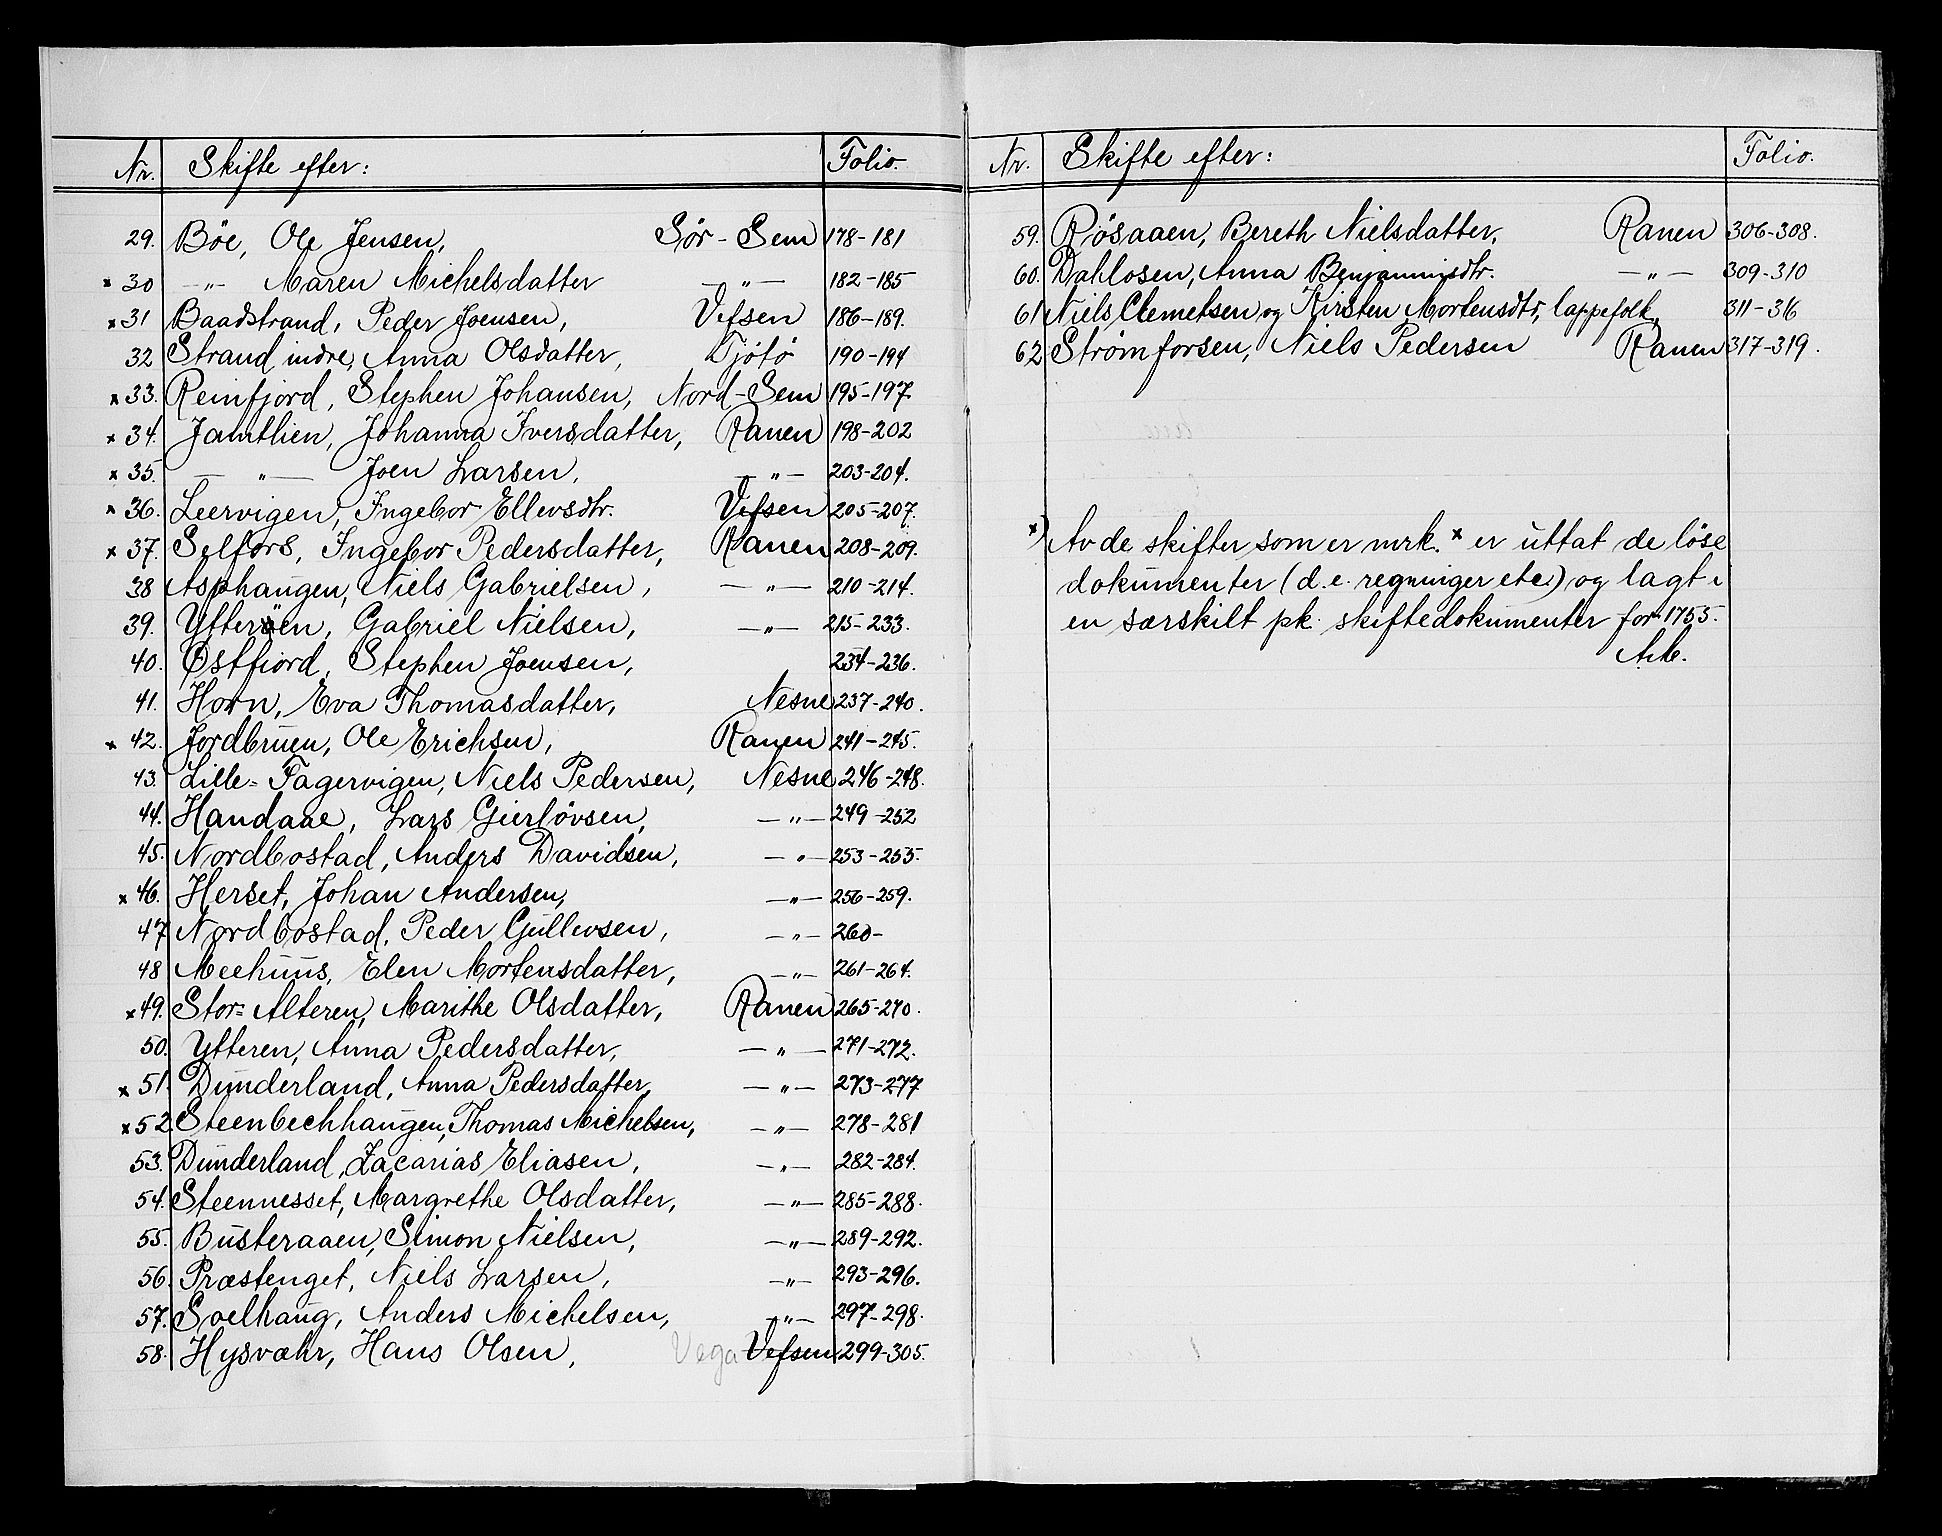 Nr. Skifte efter: Folio.
29. Böe, Ole Jensen, Sør-Sem 178-181
x 30 —„— Maren Michelsdatter —„— 182-185
x 31 Baadstrand, Peder Joensen, Vefsen 186-189.
32 Strand indre, Anna Olsdatter, Tjötö 190-194
x 33. Reinfjord, Stephen Johansen, Nord-Sem 195-197
x 34. Jamtlien, Johanna Iversdatter, Ranen 198-202
x 35. —„— Joen Larsen, —„— 203-204.
x 36. Leervigen, Ingebor Ellevsdtr. Vefsen 205-207.
x 37. Selfors, Ingebor Pedersdatter, Ranen 208-209.
38 Asphaugen, Niels Gabrielsen, —„— 210-214.
39. Ytterøen, Gabriel Nielsen, —„— 215-233.
40. Østfiord, Stephen Joensen, 234-236.
41. Horn, Eva Thomasdatter, Nesne 237-240.
x 42. Jordbruen, Ole Erichsen, Ranen 241-245.
43. Lille-Fagervigen, Niels Pedersen, Nesne 246-248.
44. Handaae, Lars Gierlövsen, —„— 249-252
45. Nordbostad, Anders Davidsen, —„— 253-255.
x 46. Herset, Johan Andersen, —„— 256-259.
47 Nordbostad, Peder Gullevsen, —„— 260-
48 Meehuus, Elen Mortensdatter, —„— 261-264.
x 49. Stor-Alteren, Marithe Olsdatter, Ranen 265-270.
50. Ytteren, Anna Pedersdatter, —„— 271-272.
x 51. Dunderland, Anna Pedersdatter, —„— 273-277
x 52 Steenbechhaugen, Thomas Michelsen, —„— 278-281
53. Dunderland, Zacarias Eliasen, —„— 282-284.
54. Steennesset, Margrethe Olsdatter, —„— 285-288.
55. Busteraaen, Simon Nielsen, —„— 289-292.
56. Præstenget, Niels Larsen, —„— 293-296.
57. Soelhaug, Anders Michelsen, —„— 297-298.
58. Hysvæhr, Hans Olsen, Vega Vefsen 299-305.
Nr. Skifte efter: Folio.
59. Røsaaen, Bereth Nielsdatter, Ranen 306-308.
60. Dahlosen, Anna Benjaminsdtr. —„— 309-310
61 Niels Clemetsen og Kirsten Mortensdtr, lappefolk, 311-316
62 Strømforsen, Niels Pedersen Ranen 317-319.
x) Av de skifter som er mrk. x er uttat de löse
dokumenter (d.e. regninger etc.) og lagt i
en særskilt pk. skiftedokumenter for 1755.